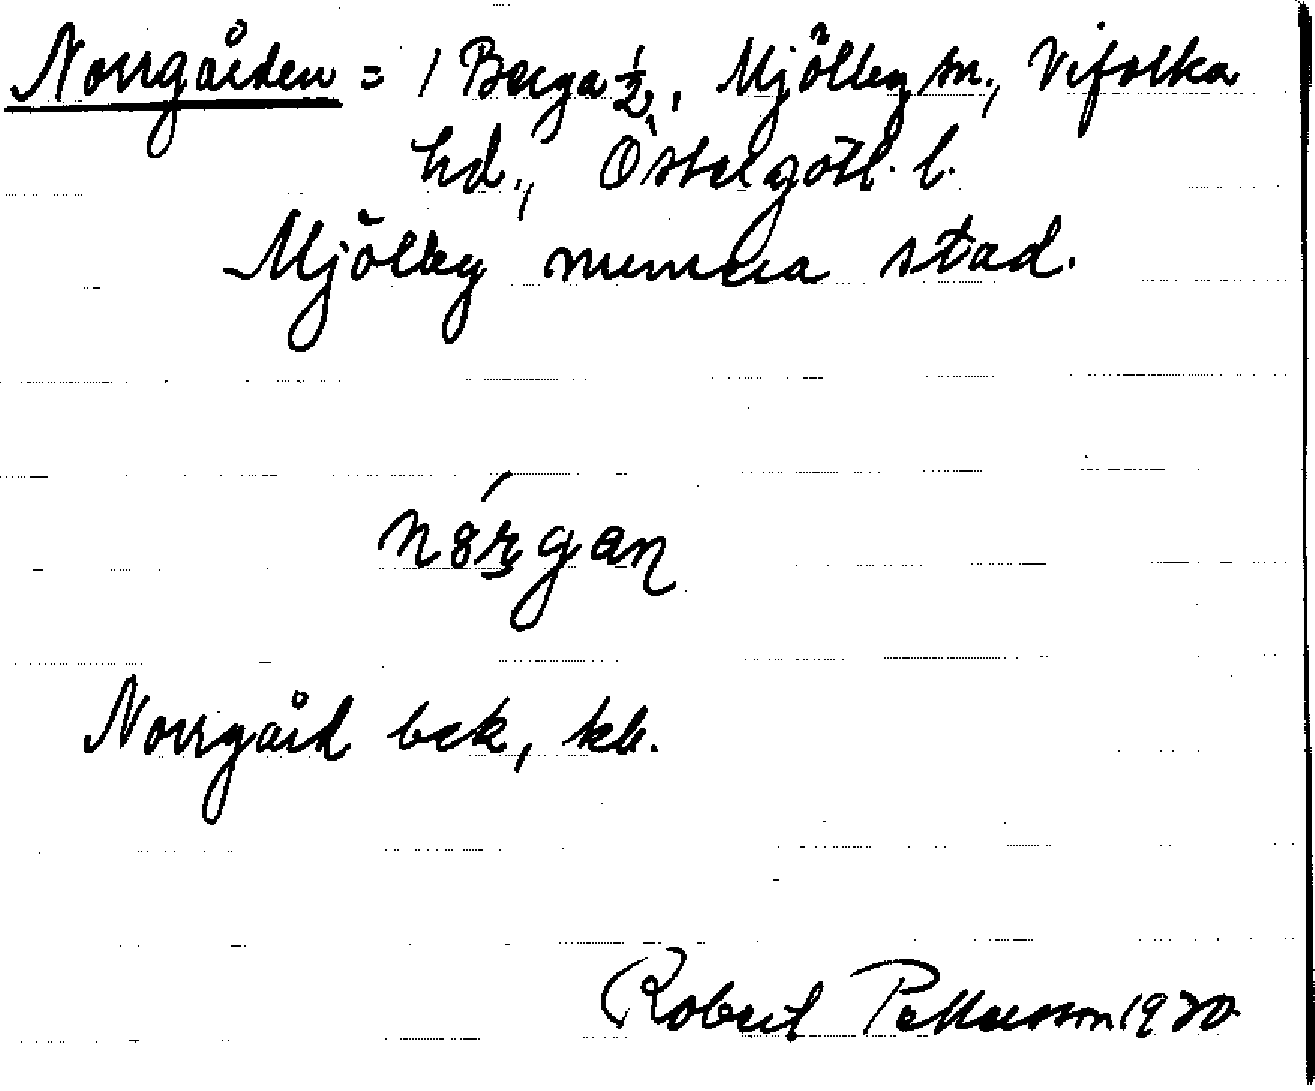 Norrgården = 1 Berga ½, Mjölby sn., Vifolka
hd., Östergötl. l.
Mjölby numera stad.
Norrgård bek, kb.
Robert Pettersson 1920.